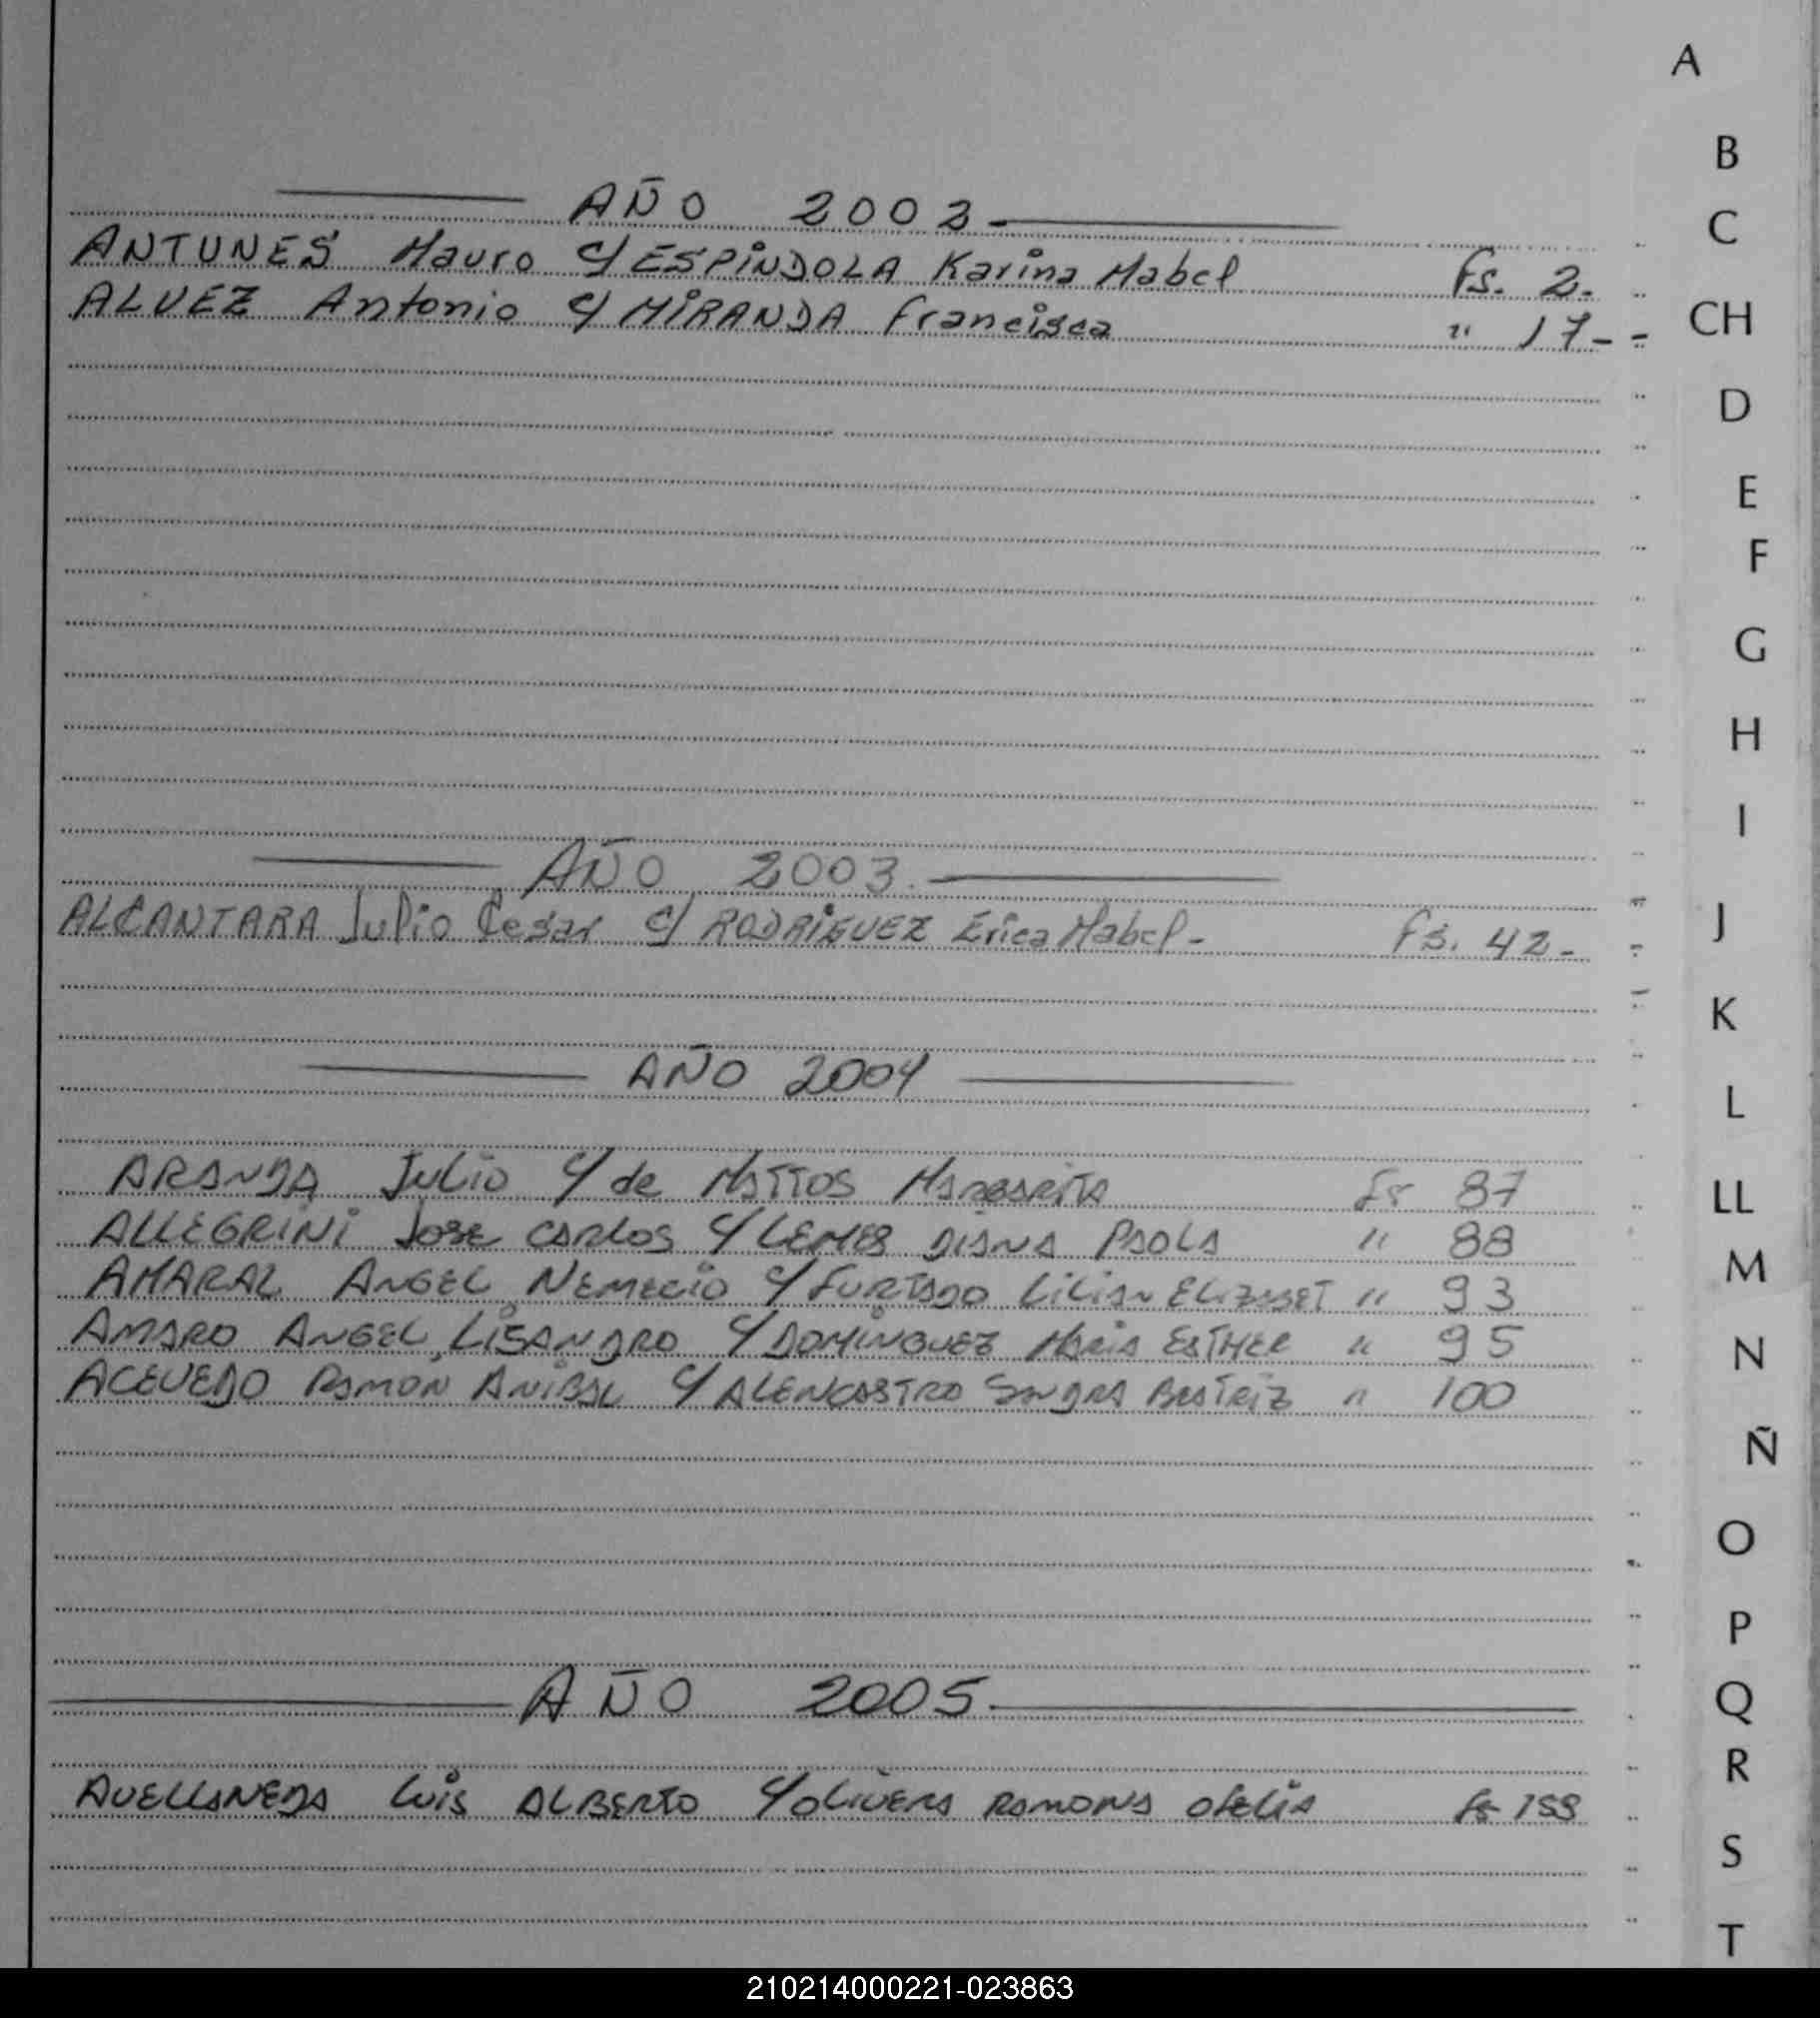 A
B
AÑO 2002-
C
ANTUNES Mauro c/ ESPINDOLA Karina Mabel Fs. 2.
ALVEZ Antonio c/ MIRANDA Francisca " 17-
CH
D
E
F
G
H
I
AÑO 2003.
ALCANTARA Julio Cesar c/ RODRIGUEZ Erica Mabel- Fs. 42-
J
K
AÑO 2004
L
ARANDA Julio c/ de MATTOS MARGARITA fs 87
LL
ALLEGRINI JOSE CARLOS c/ LEMES DIANA PAOLA " 88
AMARAL ANGEL NEMECIO c/ FURTADO LILIAN ELIZABET " 93
M
AMARO ANGEL LISANDRO c/ DOMINGUEZ MARIA ESTHER " 95
N
ACEVEDO RAMON ANIBAL c/ ALENCASTRO SANDRA BEATRIZ " 100
Ñ
O
P
AÑO 2005
Q
R
AVELLANEDA LUIS ALBERTO c/ OLIVERA RAMONA OFELIA fs
S
T
210214000221-023863